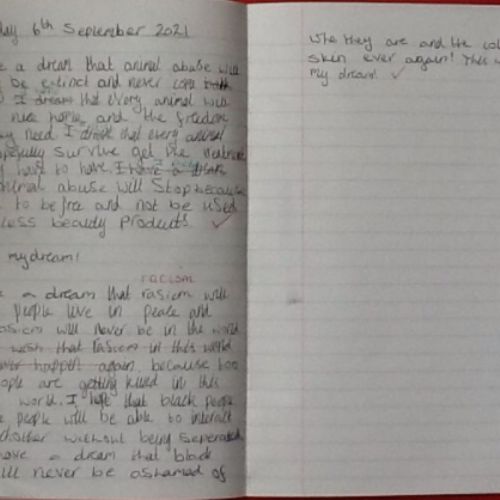 day 6th September 2021
e a dream that animal abuse will
be extinct and never come
I dream that every animal will
nice home and the freedom
need. I dream that every animal
opefully survive get the
have to have. I have a dream
animal abuse will Stop because
to be free and not be used
less beauty Products
my dream!
racism
a dream that rasicm will
people live in peace and
asicm will never be in the world
wish that rasicm in this world
ever happen again because too
ople are getting killed in this
world. I that black people
e people will be able to interact
chother without being seperated
have a dream that black
ill never be ashamed of
who they are and the col
skin ever again! This
my dream!